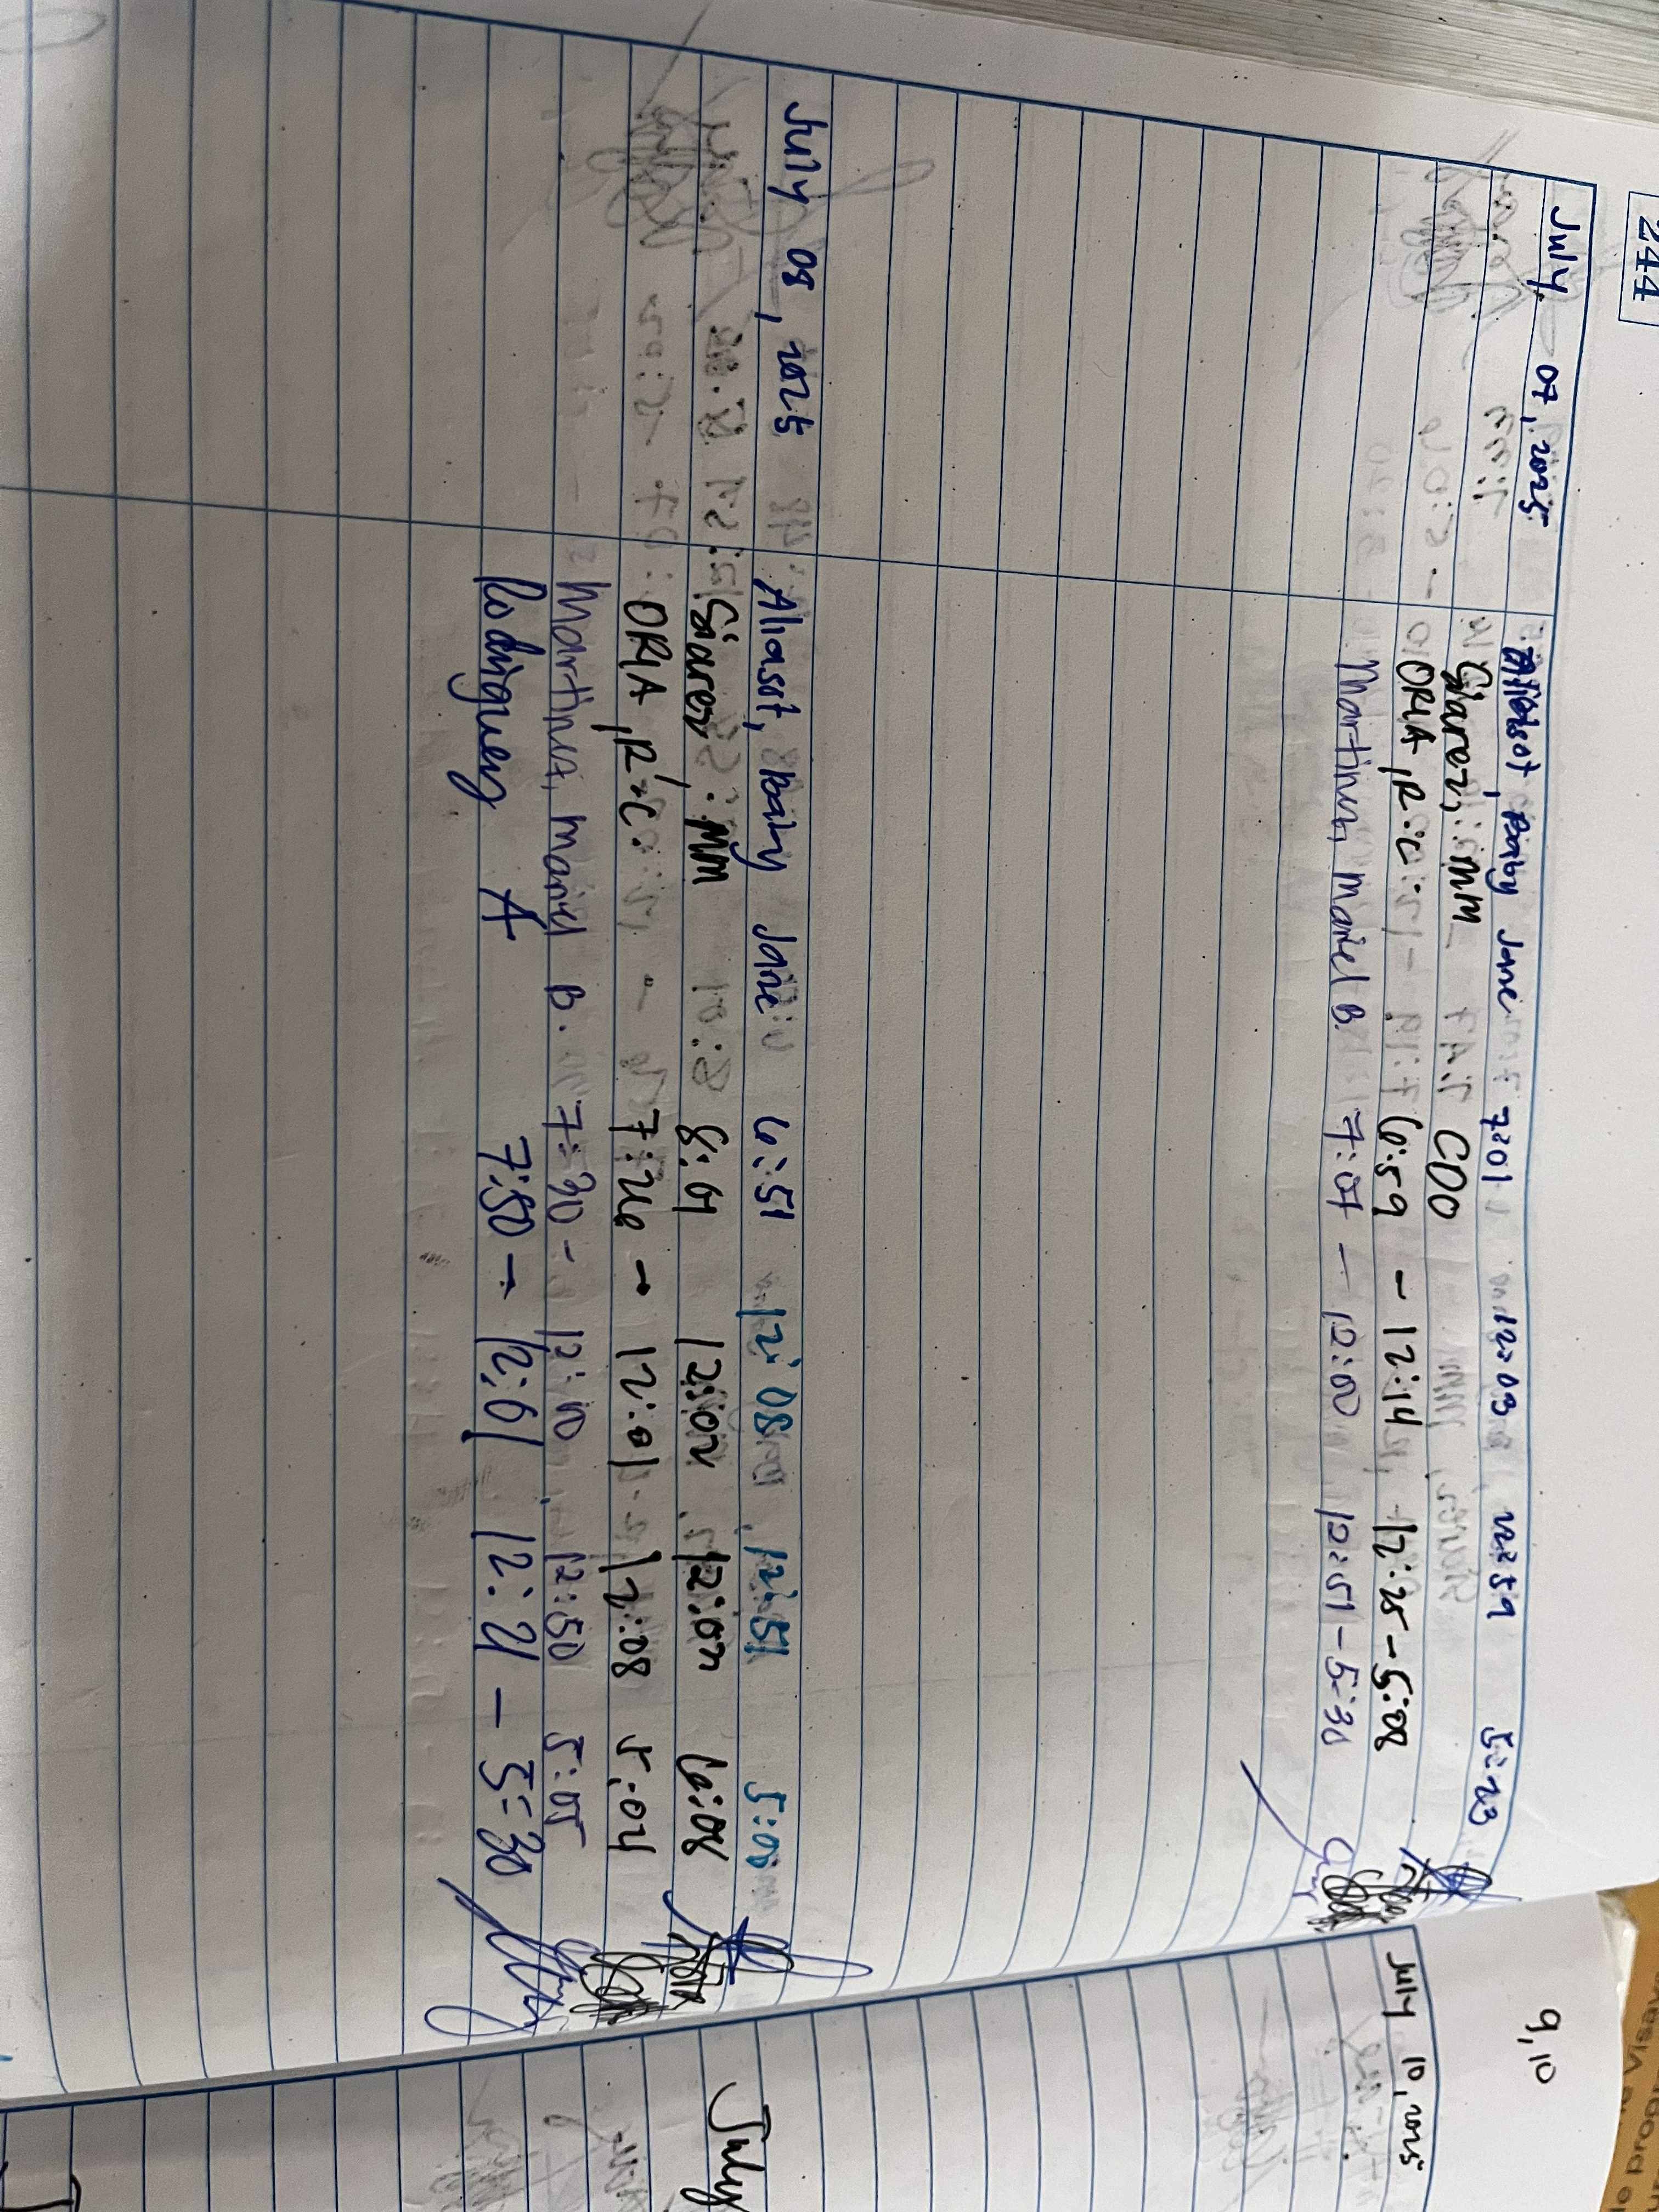 244
July 07, 2025
Aliasot, Baby Jane 7:01 12:03 12:59 5:23
Siarez, MM CDO
ORIA, R.C. 6:59 - 12:14 12:25 - 5:08
Martinez, Mariel B. 7:07 - 12:00 12:51 - 5:30
July 08, 2025 Aliasot, Baby Jane 6:51 12:08 12:51 5:08
Siarez, MM 8:01 12:02 12:02 6:08
ORIA, R.C. 7:26 - 12:01 12:08 5:04
Martinez, Mariel B. 7:30 - 12:10 12:50 5:05
Rodriguez A 7:50 - 12:01 12:21 - 5:30
9,10
July 10, 2025
July